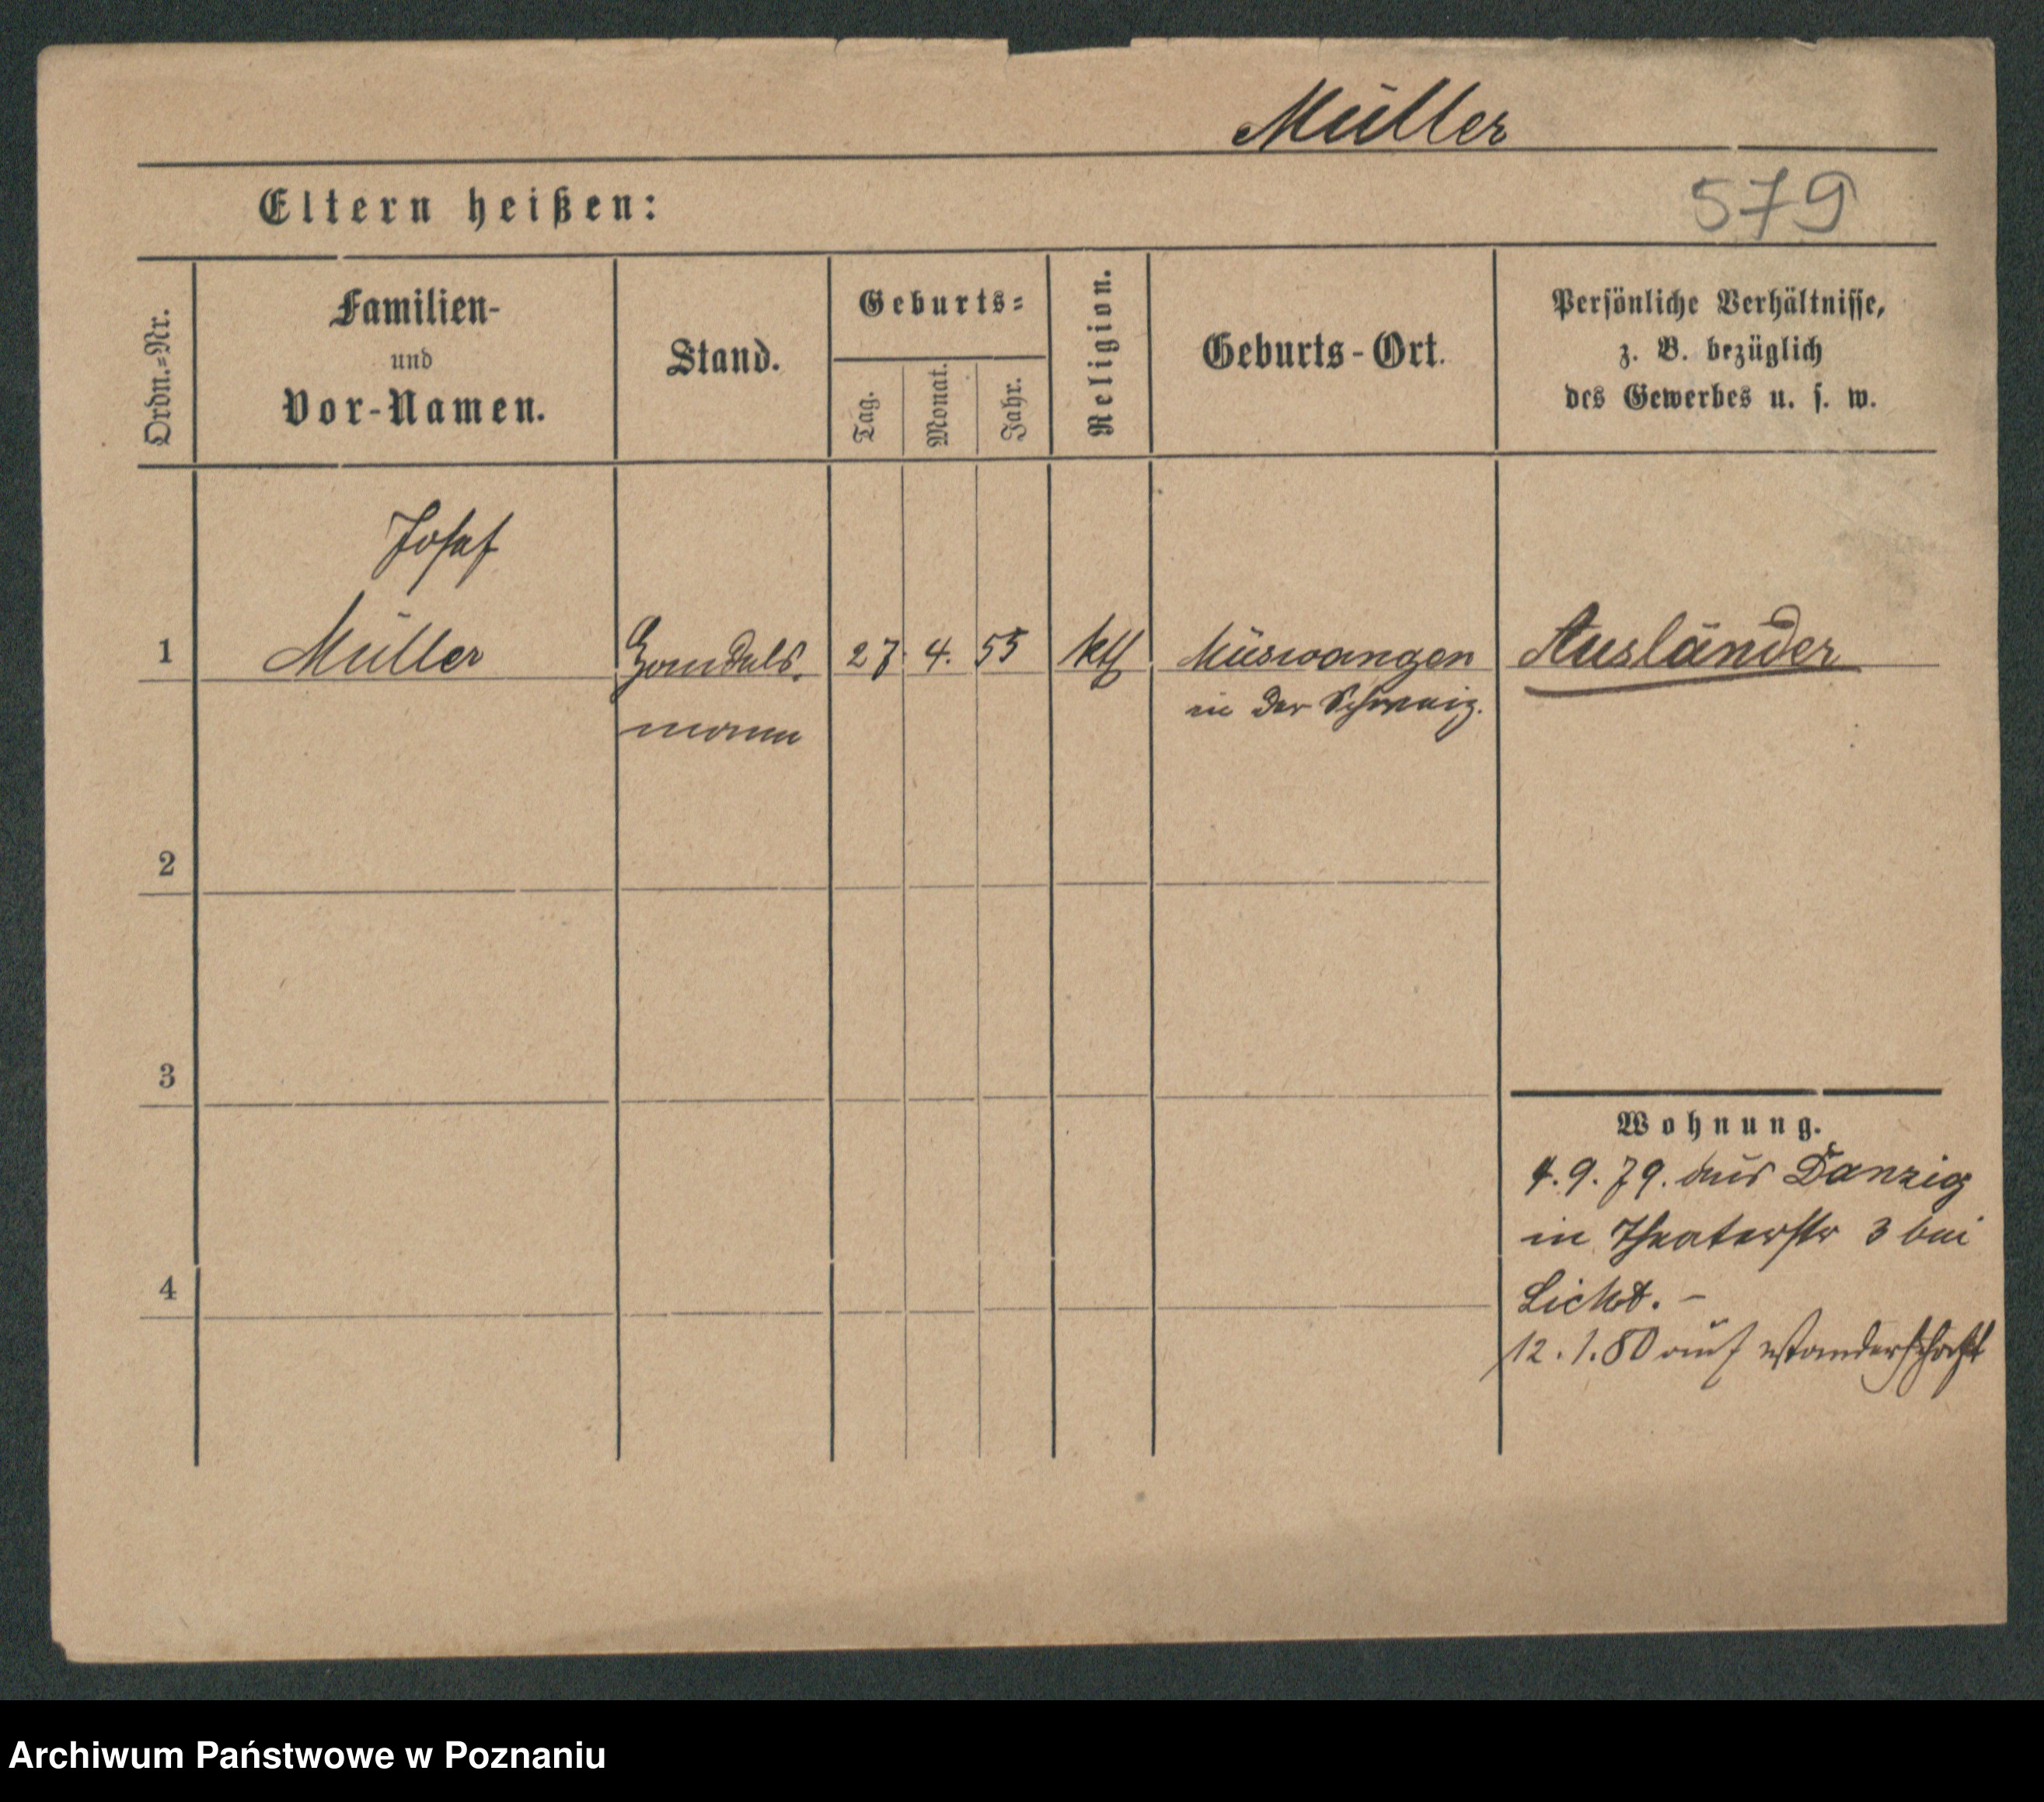 Müller
Eltern heißen:
579
Ordn.=Nr.
Familien-
und
Vor-Namen.
Stand.
Geburts=
Tag.
Monat.
Jahr.
Religion.
Geburts-Ort.
Persönliche Verhältnisse,
z. B. bezüglich
des Gewerbes u. s. w.
Josef
1 Müller Handels. 27. 4. 55 kth Müswangen Ausländer
mann in der Schweiz.
2
3
Wohnung.
4. 9. 79. aus Danzig
in Theaterstr 3 bei
4
Licht. –
12. 1. 80 auf Wanderschaft
Archiwum Państwowe w Poznaniu